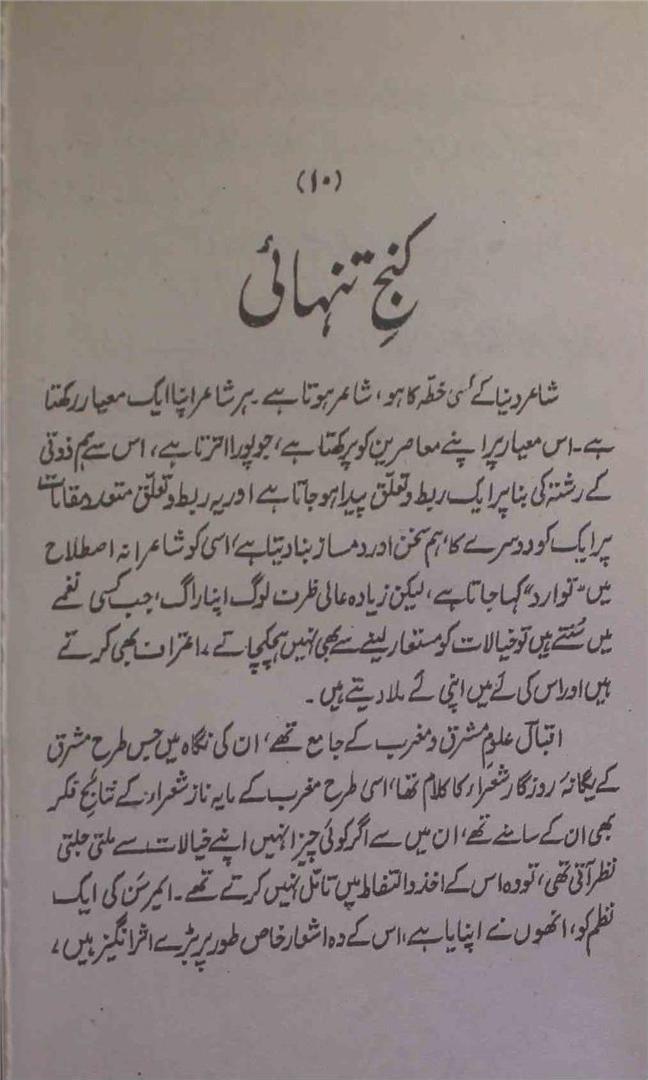 (۱۰)
کنجِ تنہائی
شاعر دنیا کے کسی خطّہ کا ہو، شاعر ہوتا ہے۔ ہر شاعر اپنا ایک معیار رکھتا
ہے۔ اس معیار پر اپنے معاصرین کو پرکھتا ہے، جو پورا اترتا ہے، اس سے ہم ذوقی
کے رشتہ کی بنا پر ایک ربط و تعلّق پیدا ہو جاتا ہے اور یہ ربط و تعلّق متعدد مقامات
پر ایک کو دوسرے کا، ہم سخن اور دمساز بنا دیتا ہے، اسی کو شاعرانہ اصطلاح
میں "توارد" کہا جاتا ہے، لیکن زیادہ عالی ظرف لوگ اپنا راگ، جب کسی نغمے
میں سُنتے ہیں تو خیالات کو مستعار لینے سے بھی نہیں ہچکچاتے، اعتراف بھی کرتے
ہیں اور اس کی لَے میں اپنی لَے ملا دیتے ہیں۔
اقبالؔ علومِ مشرق و مغرب کے جامع تھے، ان کی نگاہ میں جس طرح مشرق
کے یگانۂ روزگار شعراء کا کلام تھا، اسی طرح مغرب کے مایہ ناز شعراء کے نتائجِ فکر
بھی ان کے سامنے تھے، ان میں سے اگر کوئی چیز انہیں اپنے خیالات سے ملتی جلتی
نظر آتی تھی، تو وہ اس کے اخذ و التفاط میں تامّل نہیں کرتے تھے۔ ایمرسن کی ایک
نظم کو، انھوں نے اپنایا ہے، اس کے وہ اشعار خاص طور پر بڑے اثر انگیز ہیں،